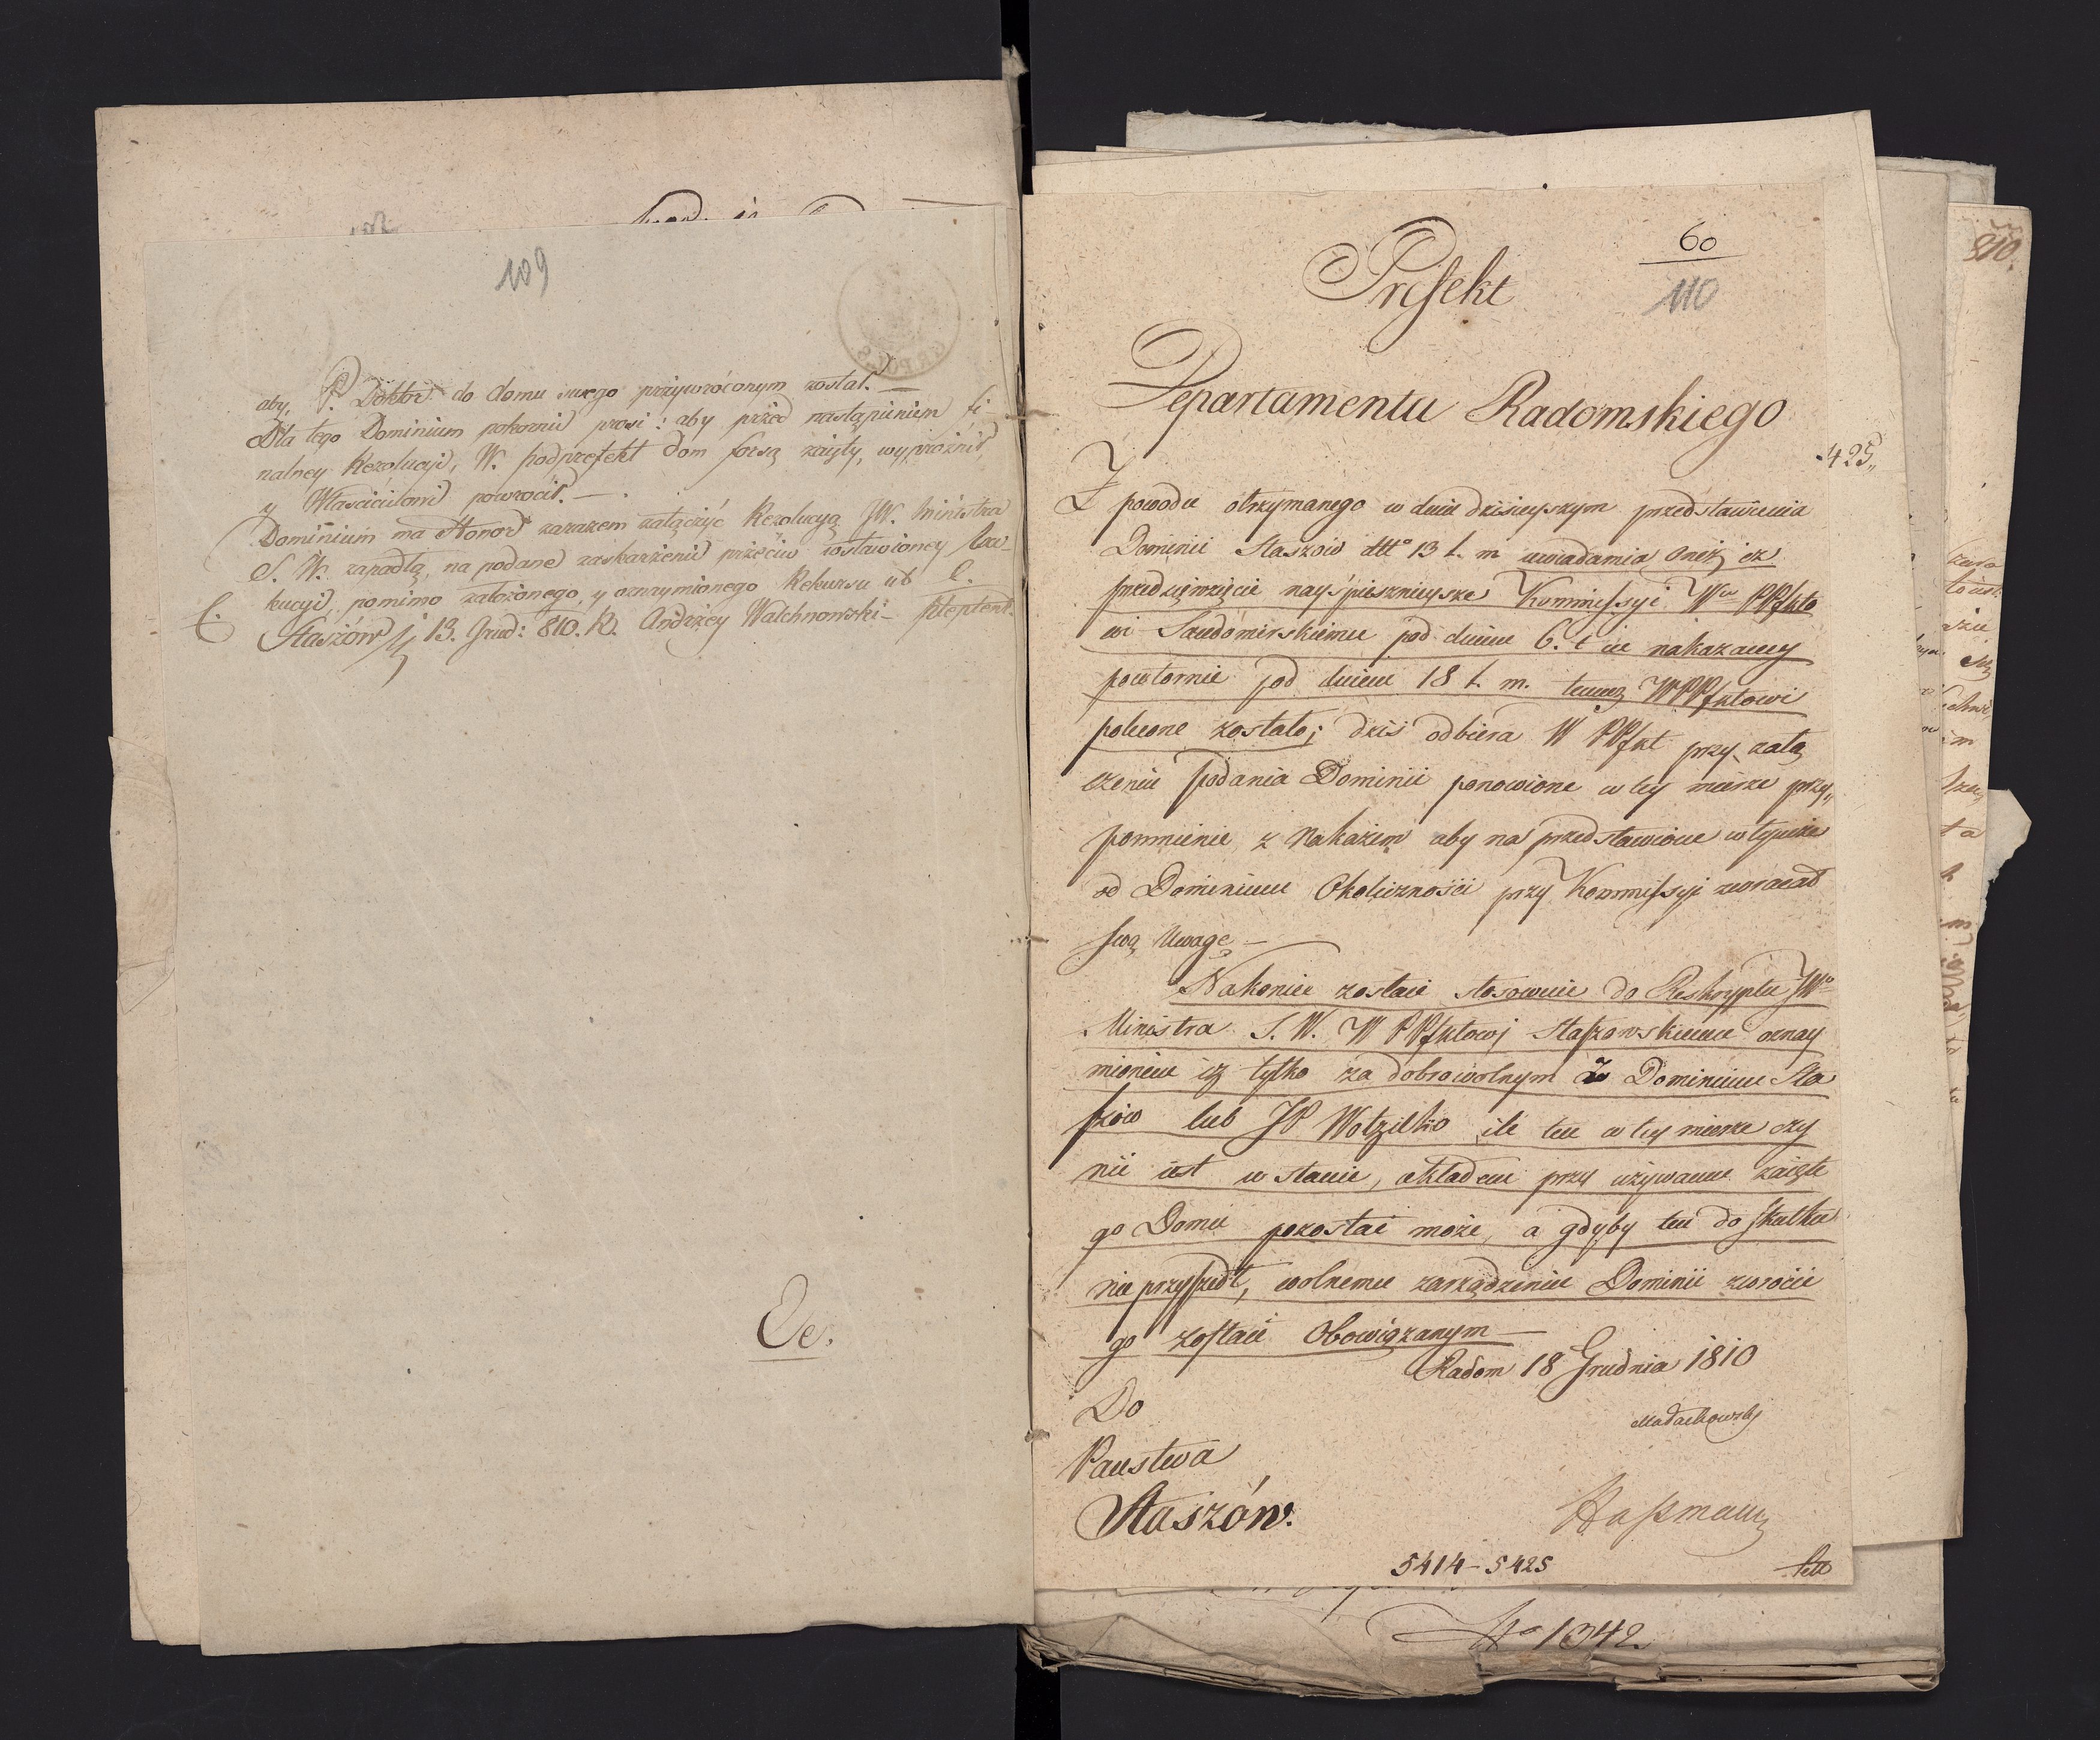 109
aby, P. Doktor do domu swego przywróconym został. —
Dla tego Dominium pokornie prosi: aby przed nastąpieniem fi-
nalney Rezolucyi, W. Podprefekt dom forsą zaięty, wypróżnił,
y Właścicielowi powrócił. —
Dominium ma Honor zarazem załączyć Rezolucyą JW. Ministra
S. W. zapadłą, na podane zaskarżenie przeciw
kucyi, pomimo założonego, y oznaymionego Rekursu ut C.
C. Staszów 13. Grud: 810. R. Andrzey Walchnowski — Plptent.
Ce.
60
110
Prefekt
Departamentu Radomskiego
425„
Z powodu otrzymanego w dniu dzisieyszym przedstawienia
Dominii Staszow dtto 13 t. m uwiadamia Oneż iż
przedsięwzięcie nayśpiesznieysze Kommissyi Wu PPfkto
wi Sandomirskiemu pod dniem 6. t m nakazaney
powtornie pod dniem 18 t. m. temuż WPPfktowi
polecone zostało; dziś odbiera W PPfkt przy załą
czeniu Podania Dominii ponowione w tey mierze przy„
pomnienie z Nakazem aby na przedstawione w teymierze
od Dominium Okoliczności przy Kommissyi zwracał
swą Uwagę —
Nakoniec zostaie stosownie do Reskryptu JWo
Ministra S. W. W PPfktowi Staszowskiemu oznay
mione iż tylko za dobrowolnym z Dominium Sta
szów lub JP Wotzelko ile ten w tey mierze czy
nić iest w stanie, układem przy używaniu zaięte
go Domu pozostać może, a gdyby ten do skutku
nie przyszedł, wolnemu zarządzeniu Dominii zwrócić
go zostaie Obowiązanym —
Radom 18 Grudnia 1810
Do
Małachowski
Państwa
Staszów.
5414 – 5425
No 1342.
810.